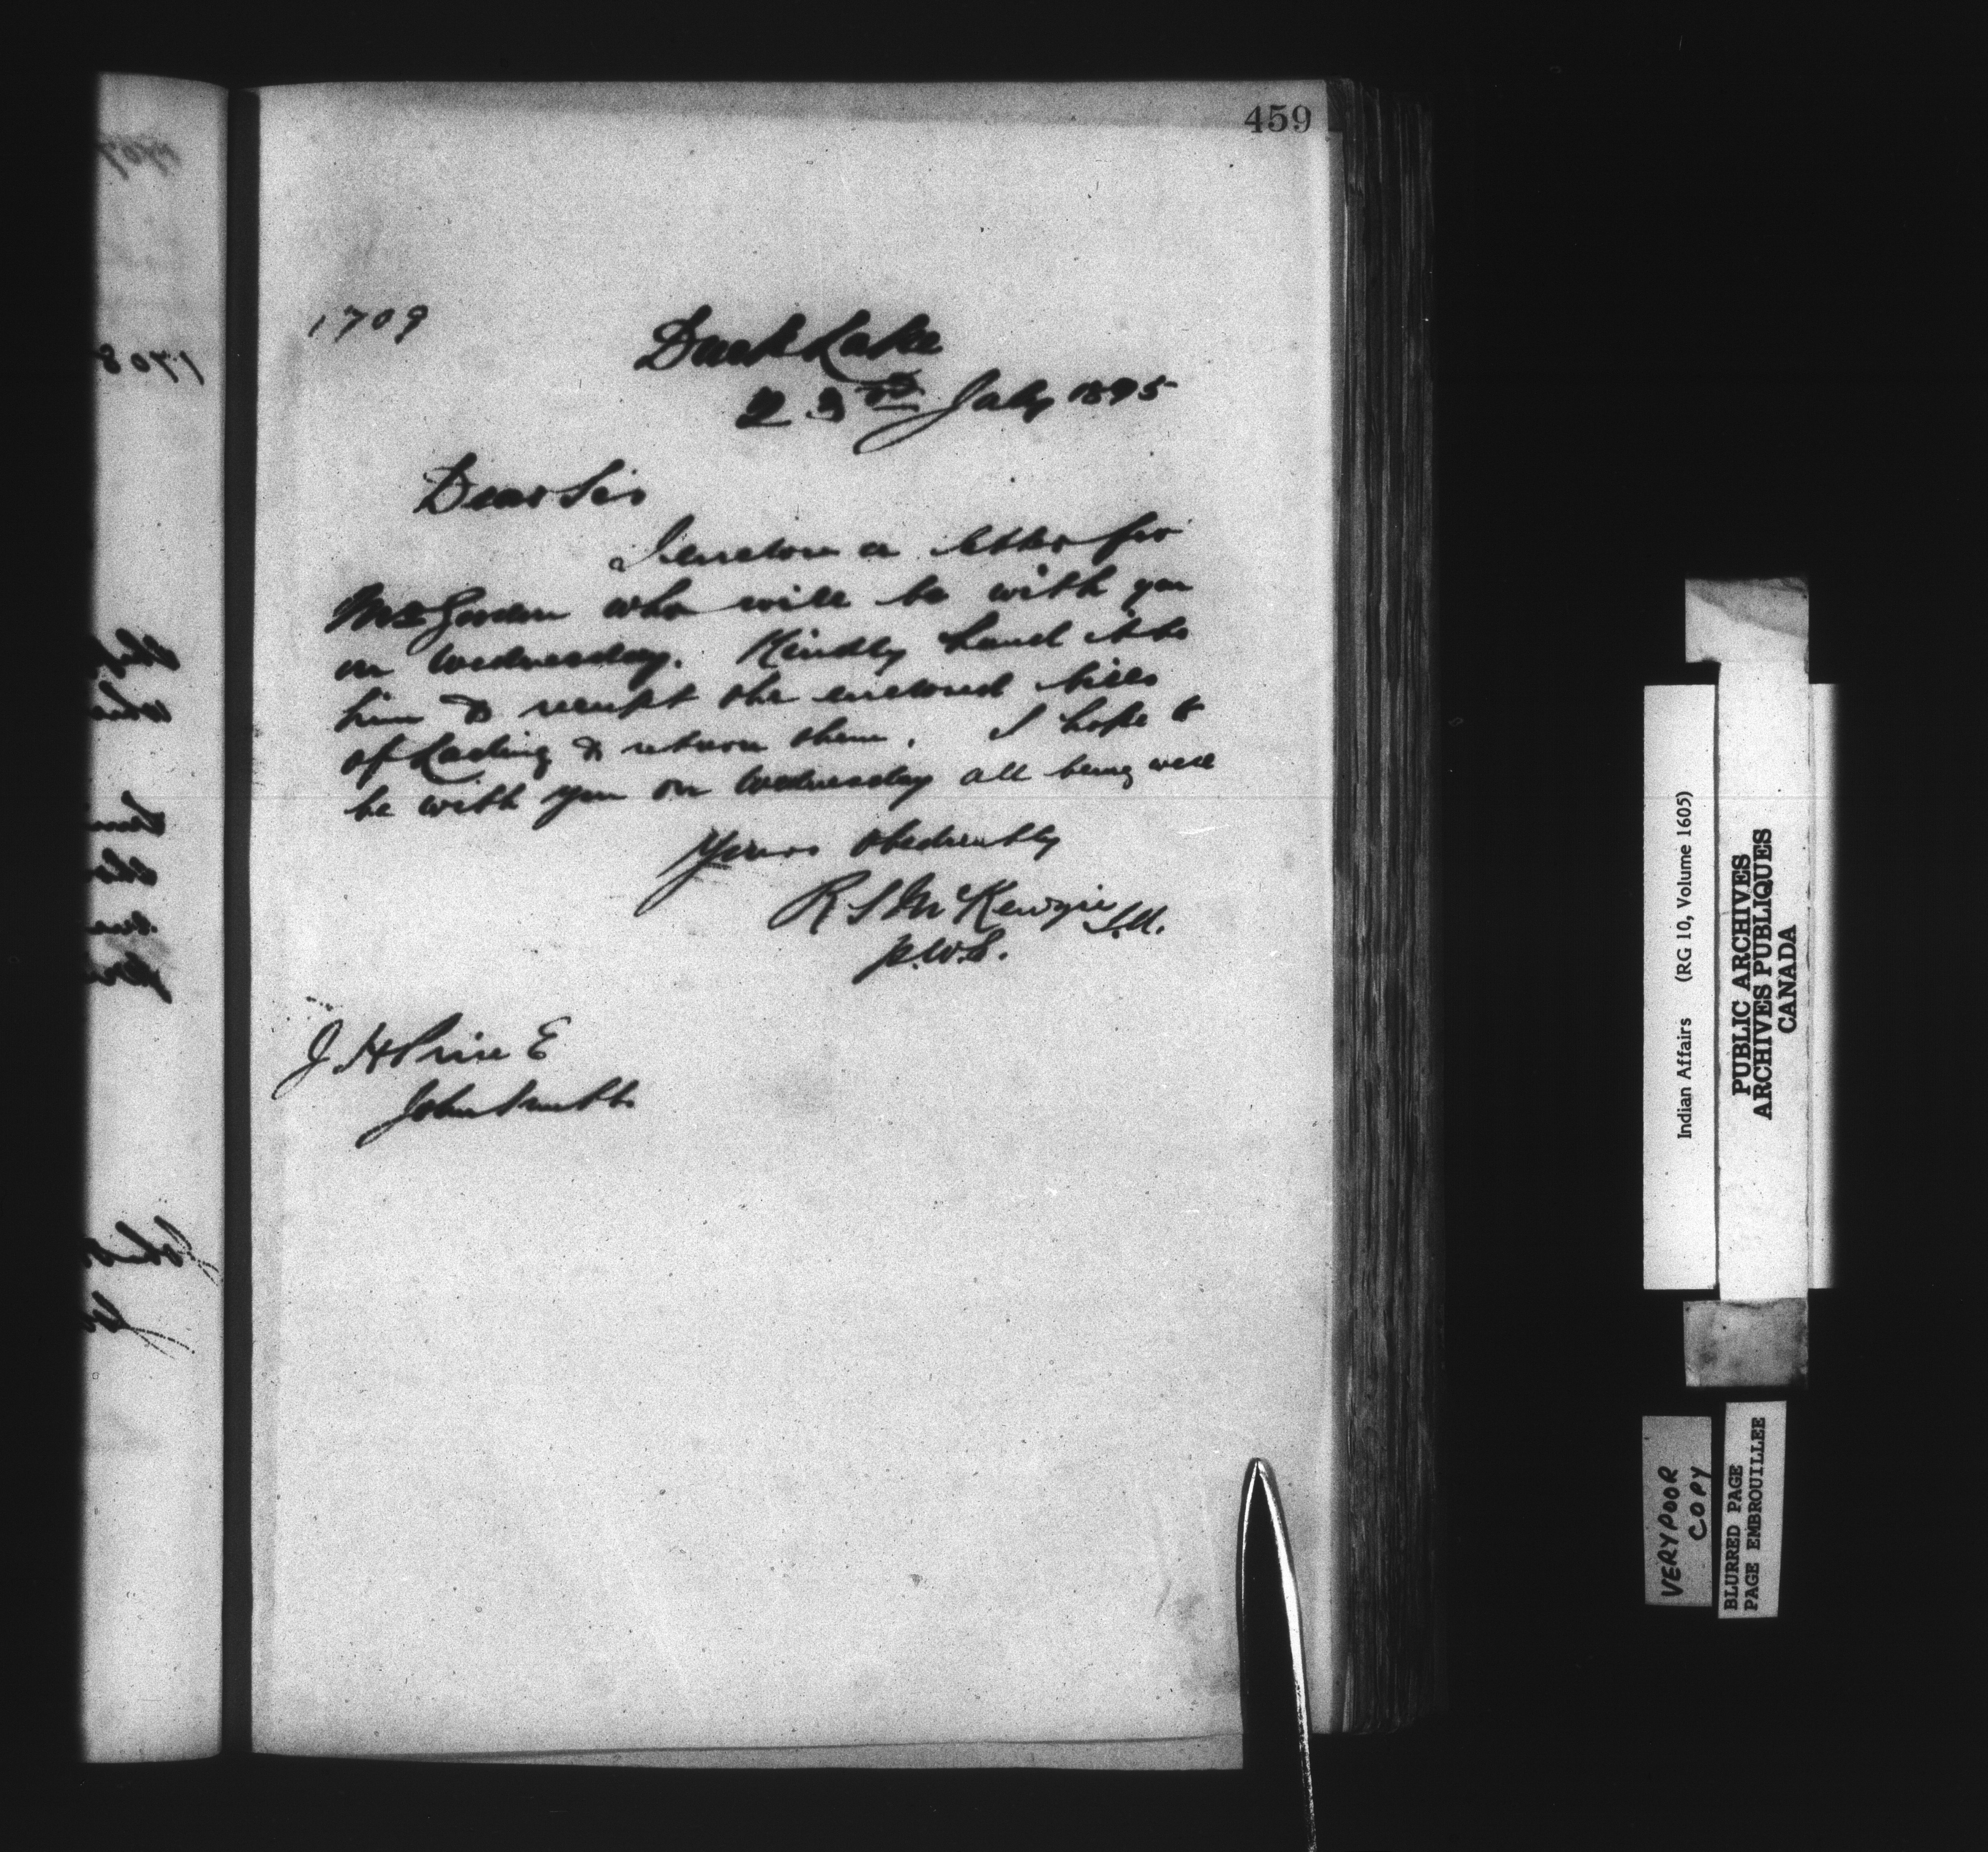 459
1709
Duck Lake
23rd July 1895
Dear Sir
I enclose a letter for
Mr Gordon who will be with you
on Wednesday. Kindly hand it to
him & receipt the enclosed bills
of Lading & return them. I hope to
be with you on Wednesday all being well
Yours obediently
R S McKenzie I.A.
J H Price E
John Smiths
1708
Indian Affairs (RG 10, Volume 1605)
PUBLIC ARCHIVES
ARCHIVES PUBLIQUES
CANADA
VERY POOR
COPY
BLURRED PAGE
PAGE EMBROUILLEE